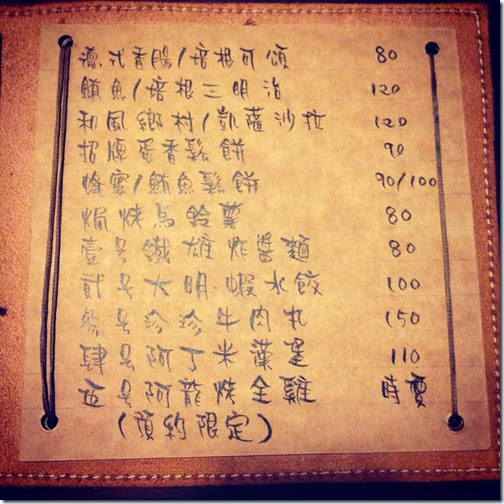 德式香腸/培根可頌 80
鮪魚/培根三明治 120
和風鄉村/凱薩沙拉 120
招牌蛋香鬆餅 90
蜂蜜/鮪魚鬆餅 90/100
焗烤馬鈴薯 80
壹号鐵雄炸醬麵 80
貳号大明蝦水餃 100
參号珍珍牛肉丸 150
肆号阿丁米漢堡 110
伍号阿龍烤全雞 時價
(預約限定)